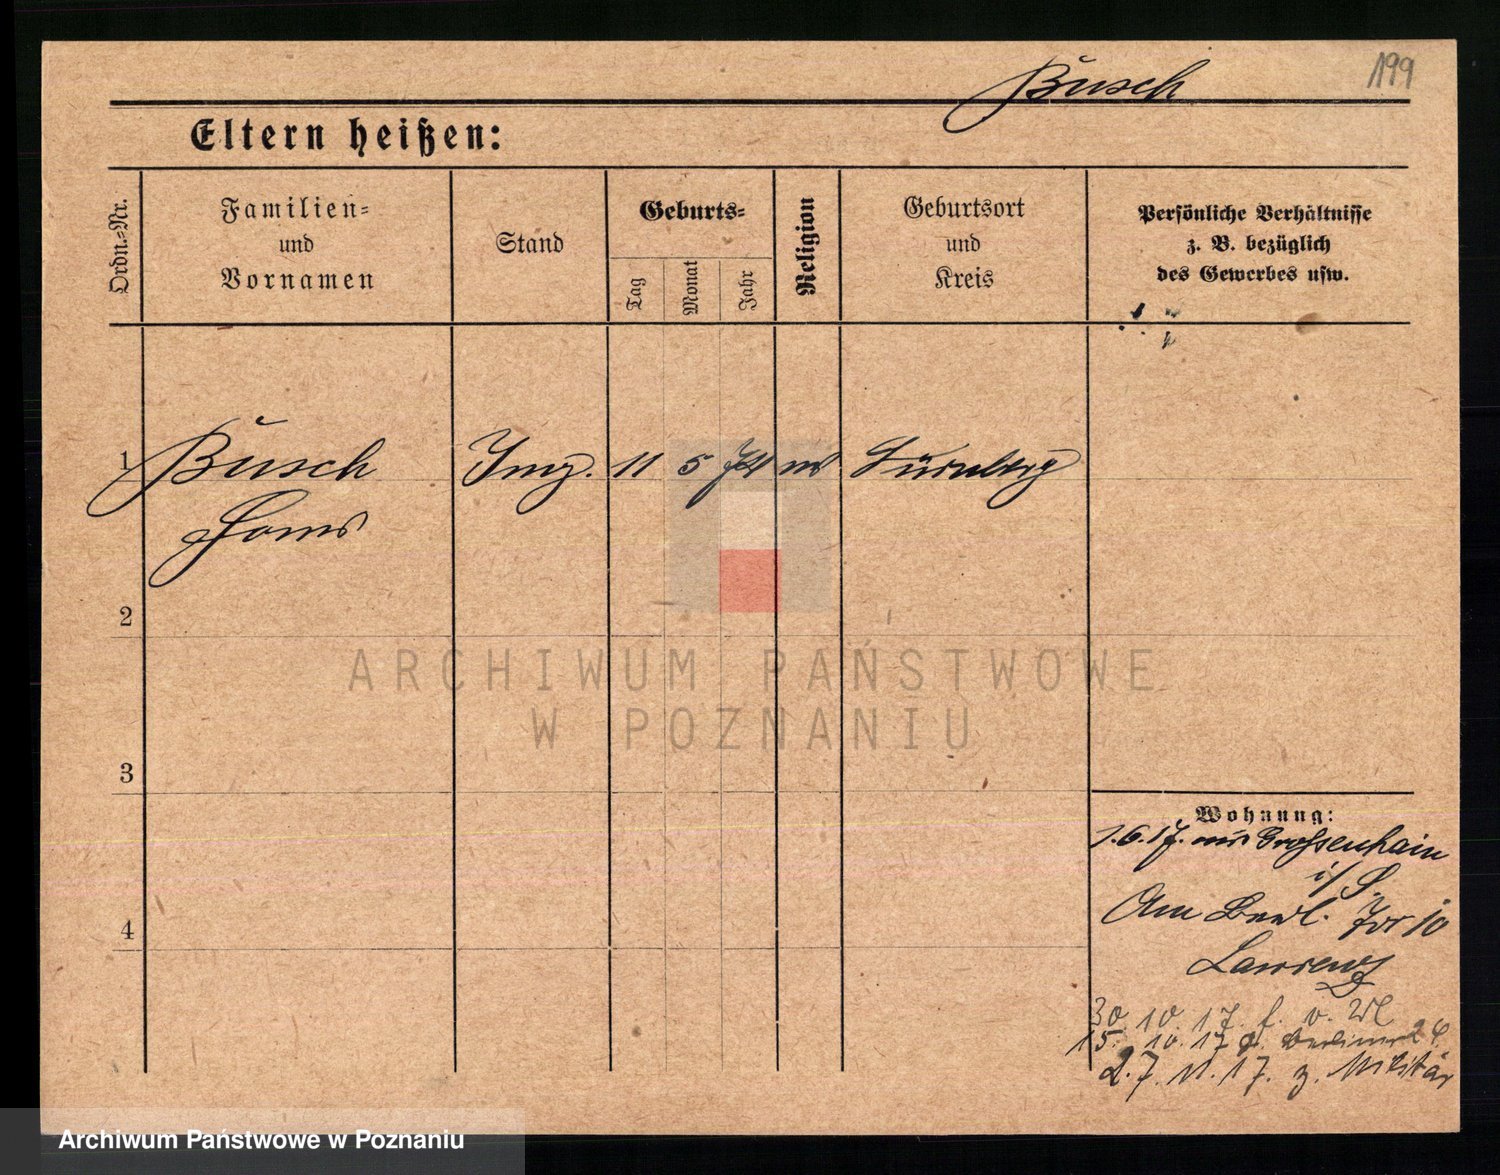 Busch
199
Eltern heißen:
Ordn.=Nr.
Familien=
und
Vornamen
Stand
Geburts=
Tag
Monat
Jahr
Religion
Geburtsort
und
Kreis
Persönliche Verhältnisse
z. B. bezüglich
des Gewerbes usw.
1
Busch
Hans
Ing. 11 5 74
Nürnberg
2
ARCHIWUM PAŃSTWOWE
W POZNANIU
3
Wohnung:
1.6.17. aus Grossenhain
i/S.
4
Am Berl. Tor 10
Lawrenz
30. 10. 17. f. v. Wl
15. 10. 17 Berliner
27. 11. 17. z. Militär
Archiwum Państwowe w Poznaniu